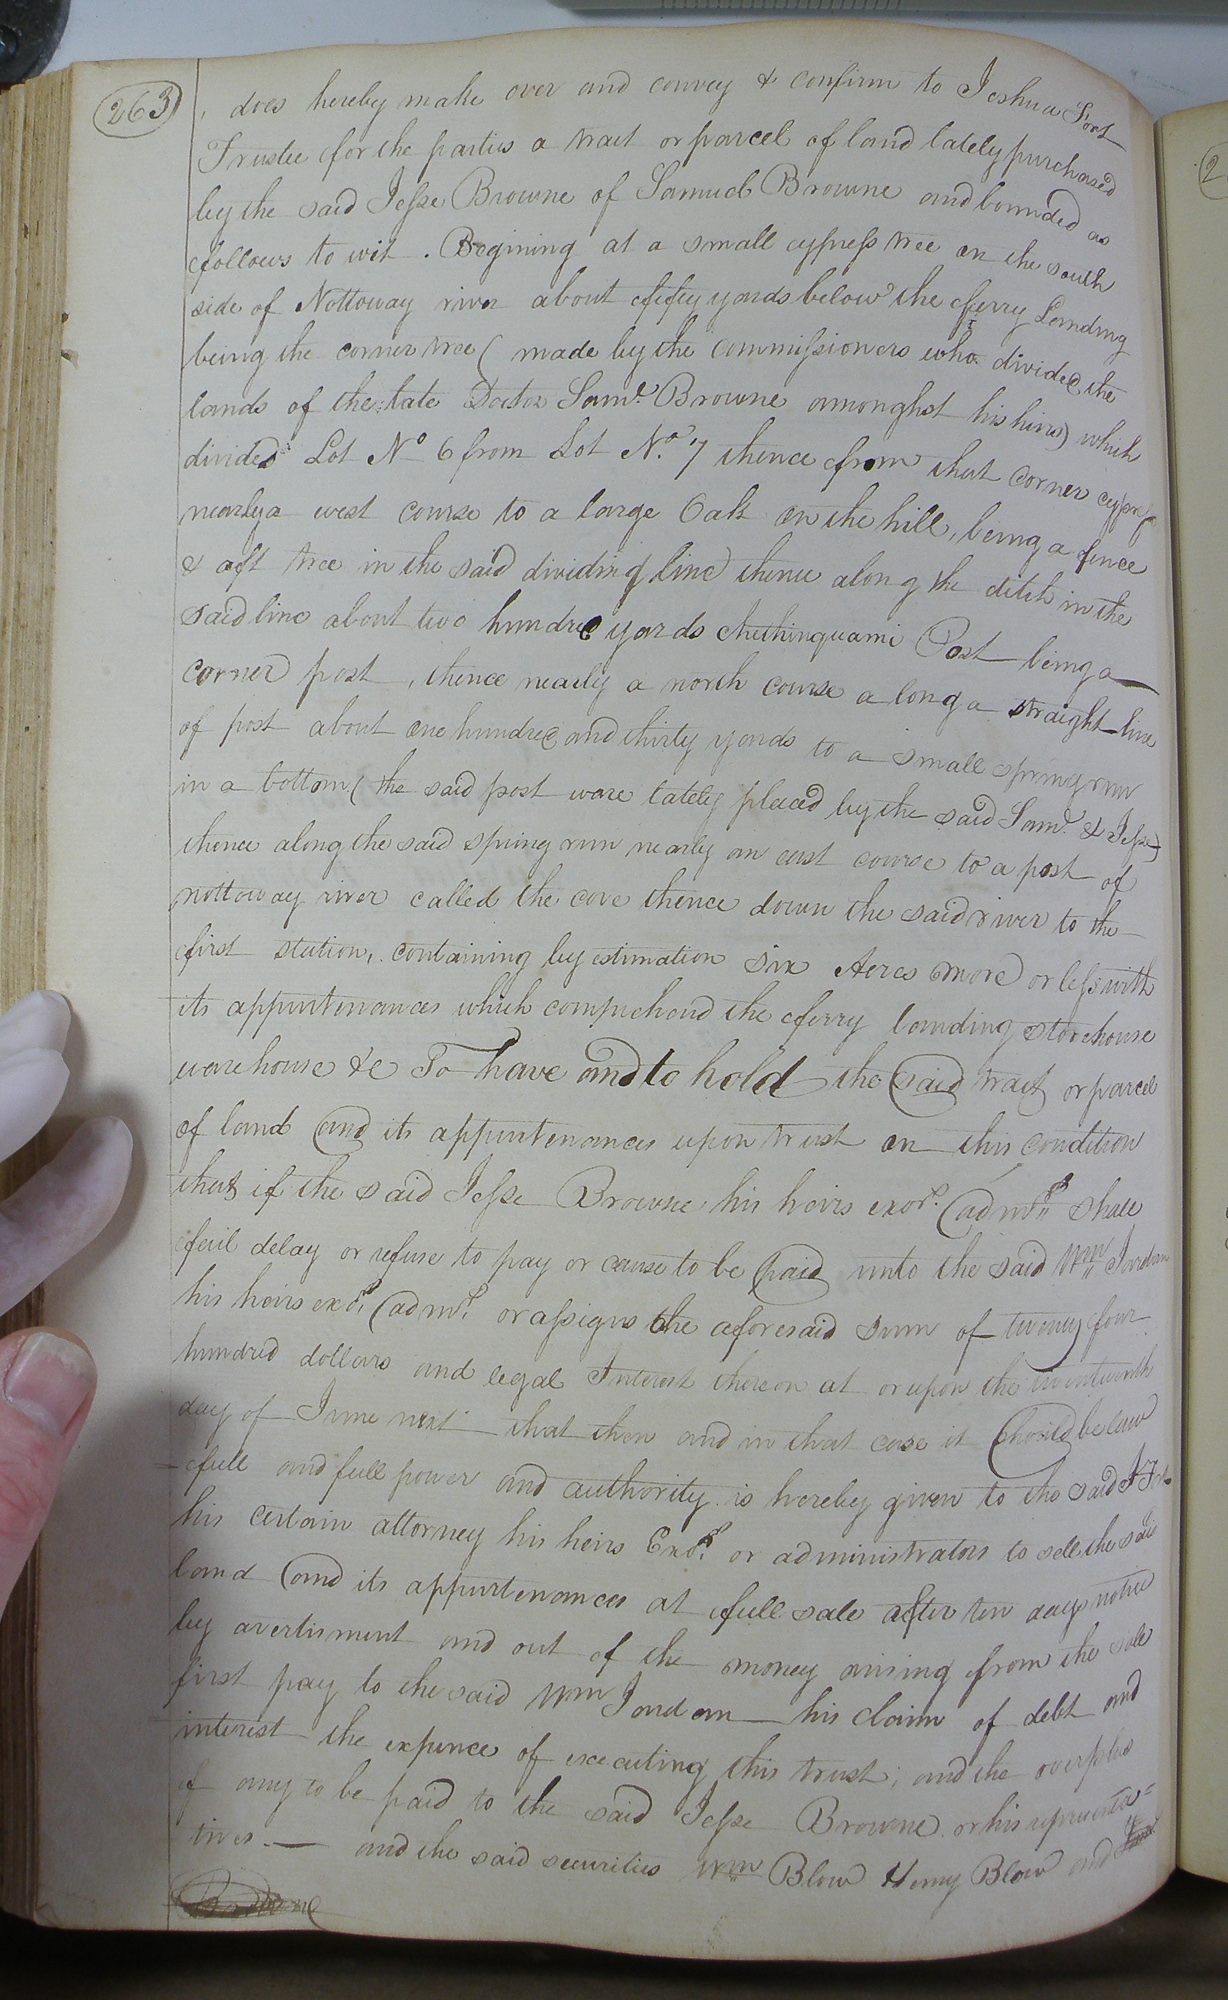 263
does hereby make over and convey & confirm to Joshua Fort
Trustee for the parties a tract or parcel of land lately purchased
by the said Jesse Browne of Samuel Browne and bounded as
follows to wit. Begining at a small cypress tree on the south
side of Nottoway river about fifty yards below the ferry Landing
being the corner tree (made by the commissioners who divided the
lands of the late Doctor Saml. Browne amonghst his heirs) which
divided Lot No 6 from Lot No. 7 thence from that corner cypress
nearly a west course to a large Oak on the hill, being a fence
& aft tree in the said dividing line thence along the ditch in the
said line about two hundred yards Post being a
corner post, thence nearly a north course along a straight line
of post about one hundred and thirty yards to a small spring run
in a bottom (the said post ware lately placed by the said Saml. & Jesse)
thence along the said spring run nearly an east course to a post of
nottoway river called the cove thence down the said river to the
first station, containing by estimation six Acres more or less with
its appurtenances which comprehend the ferry landing storehouse
warehouse &c To have and to hold the said tract or parcel
of land and its appurtenances upon trust on this condition
that if the said Jesse Browne his heirs exors. admrs. shall
fail delay or refuse to pay or cause to be paid unto the said Wm Jordan
his heirs exors. admrs. or assigns the aforesaid sum of twenty four
hundred dollars and legal Interest thereon at or upon the
day of June next that then and in that case it should be law
full and full power and authority is hereby given to the said J Fort
his certain attorney his heirs Exors. or administrators to sell the said
land and its appurtenances at full sale after ten days notice
by avertisment and out of the money arising from the sale
first pay to the said Wm Jordan his claim of debt and
interest the expence of executing this trust; and the overplus
if any to be paid to the said Jesse Browne or his representa=
tives — and the said securities Wm Blow Henry Blow and
Browne